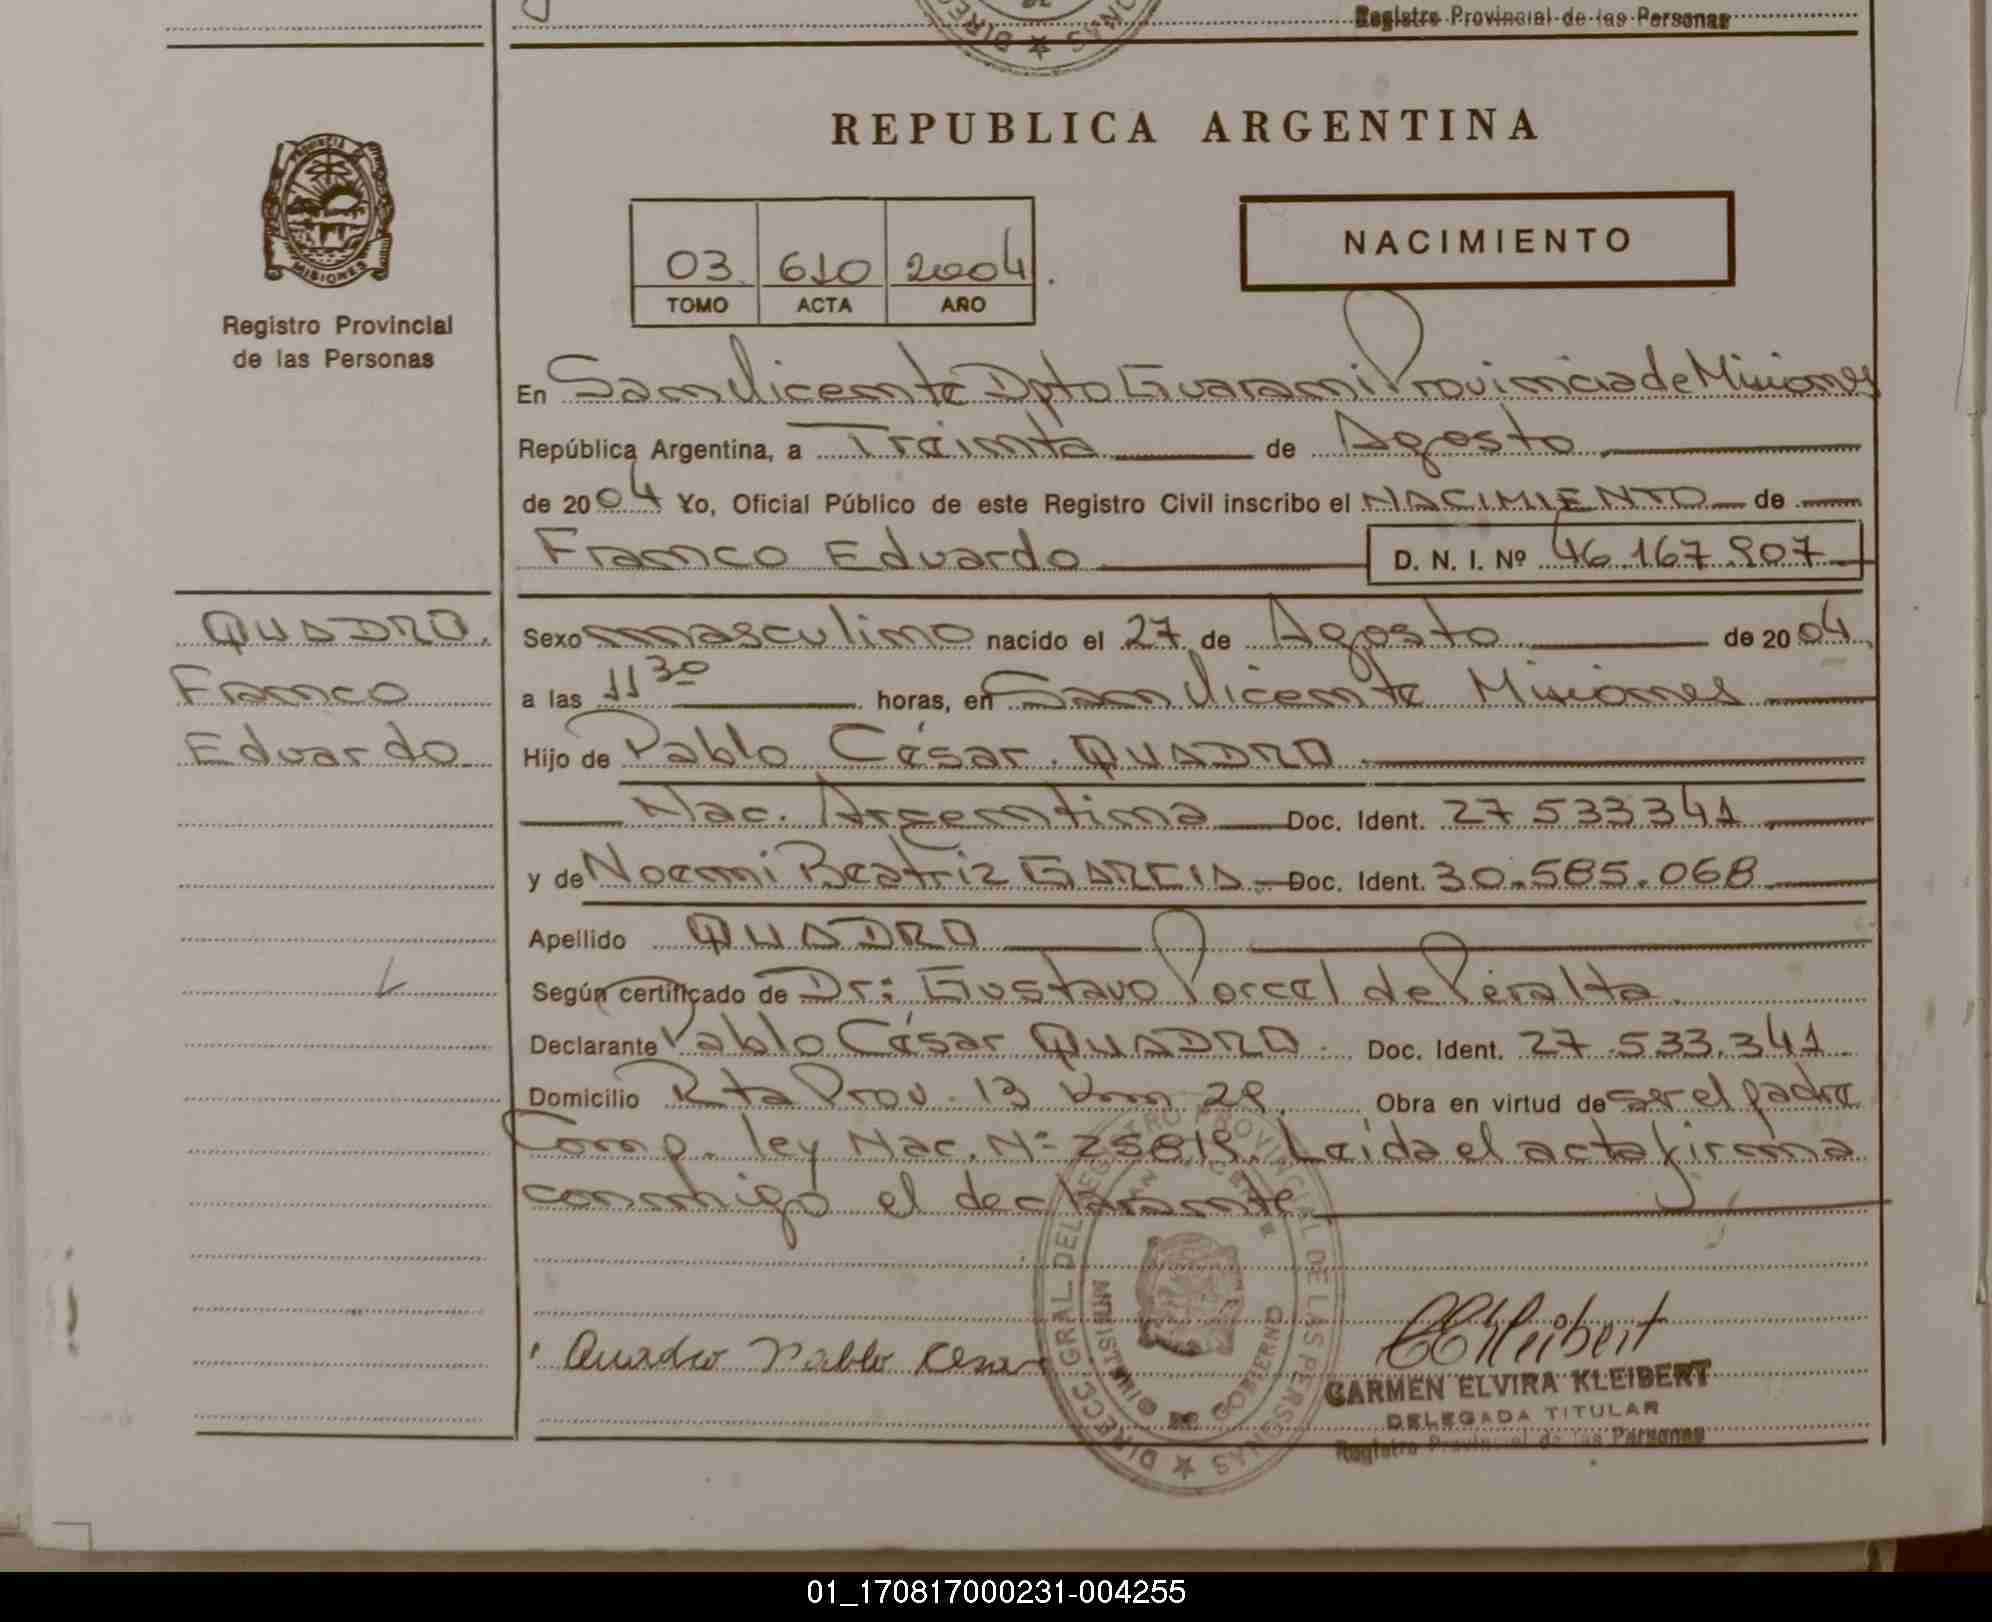 Registro Provincial de las Personas
REPUBLICA ARGENTINA
PROVINCIA DE MISIONES
Registro Provincial
de las Personas
03 610 2004
TOMO ACTA AÑO
NACIMIENTO
En San Vicente Dpto Guarani Provincia de Misiones
República Argentina, a Treinta de Agosto
de 2004 Yo, Oficial Público de este Registro Civil inscribo el NACIMIENTO de
Franco Eduardo D. N. I. Nº 46.167.907
QUADRO
Franco
Eduardo
Sexo masculino nacido el 27 de Agosto de 2004
a las 11 30 horas, en San Vicente Misiones
Hijo de Pablo César QUADRO
Nac. Argentina Doc. Ident. 27.533.341
y de Noemi Beatriz GARCIA Doc. Ident. 30.585.068
Apellido QUADRO
Según certificado de Dr: Gustavo Porcel de Peralta
Declarante Pablo César QUADRO Doc. Ident. 27.533.341
Domicilio Rta Prov. 13 Km 29 Obra en virtud de ser el padre
Comp. ley Nac. Nº 25819. Leida el acta firma
conmigo el declarante
Quadro Pablo Cesar
DIRECC. GRAL. DEL REGISTRO PROVINCIAL DE LAS PERSONAS
SAN VICENTE
MINISTERIO DE GOBIERNO
CEKleibert
CARMEN ELVIRA KLEIBERT
DELEGADA TITULAR
Registro Provincial de las Personas
01_170817000231-004255